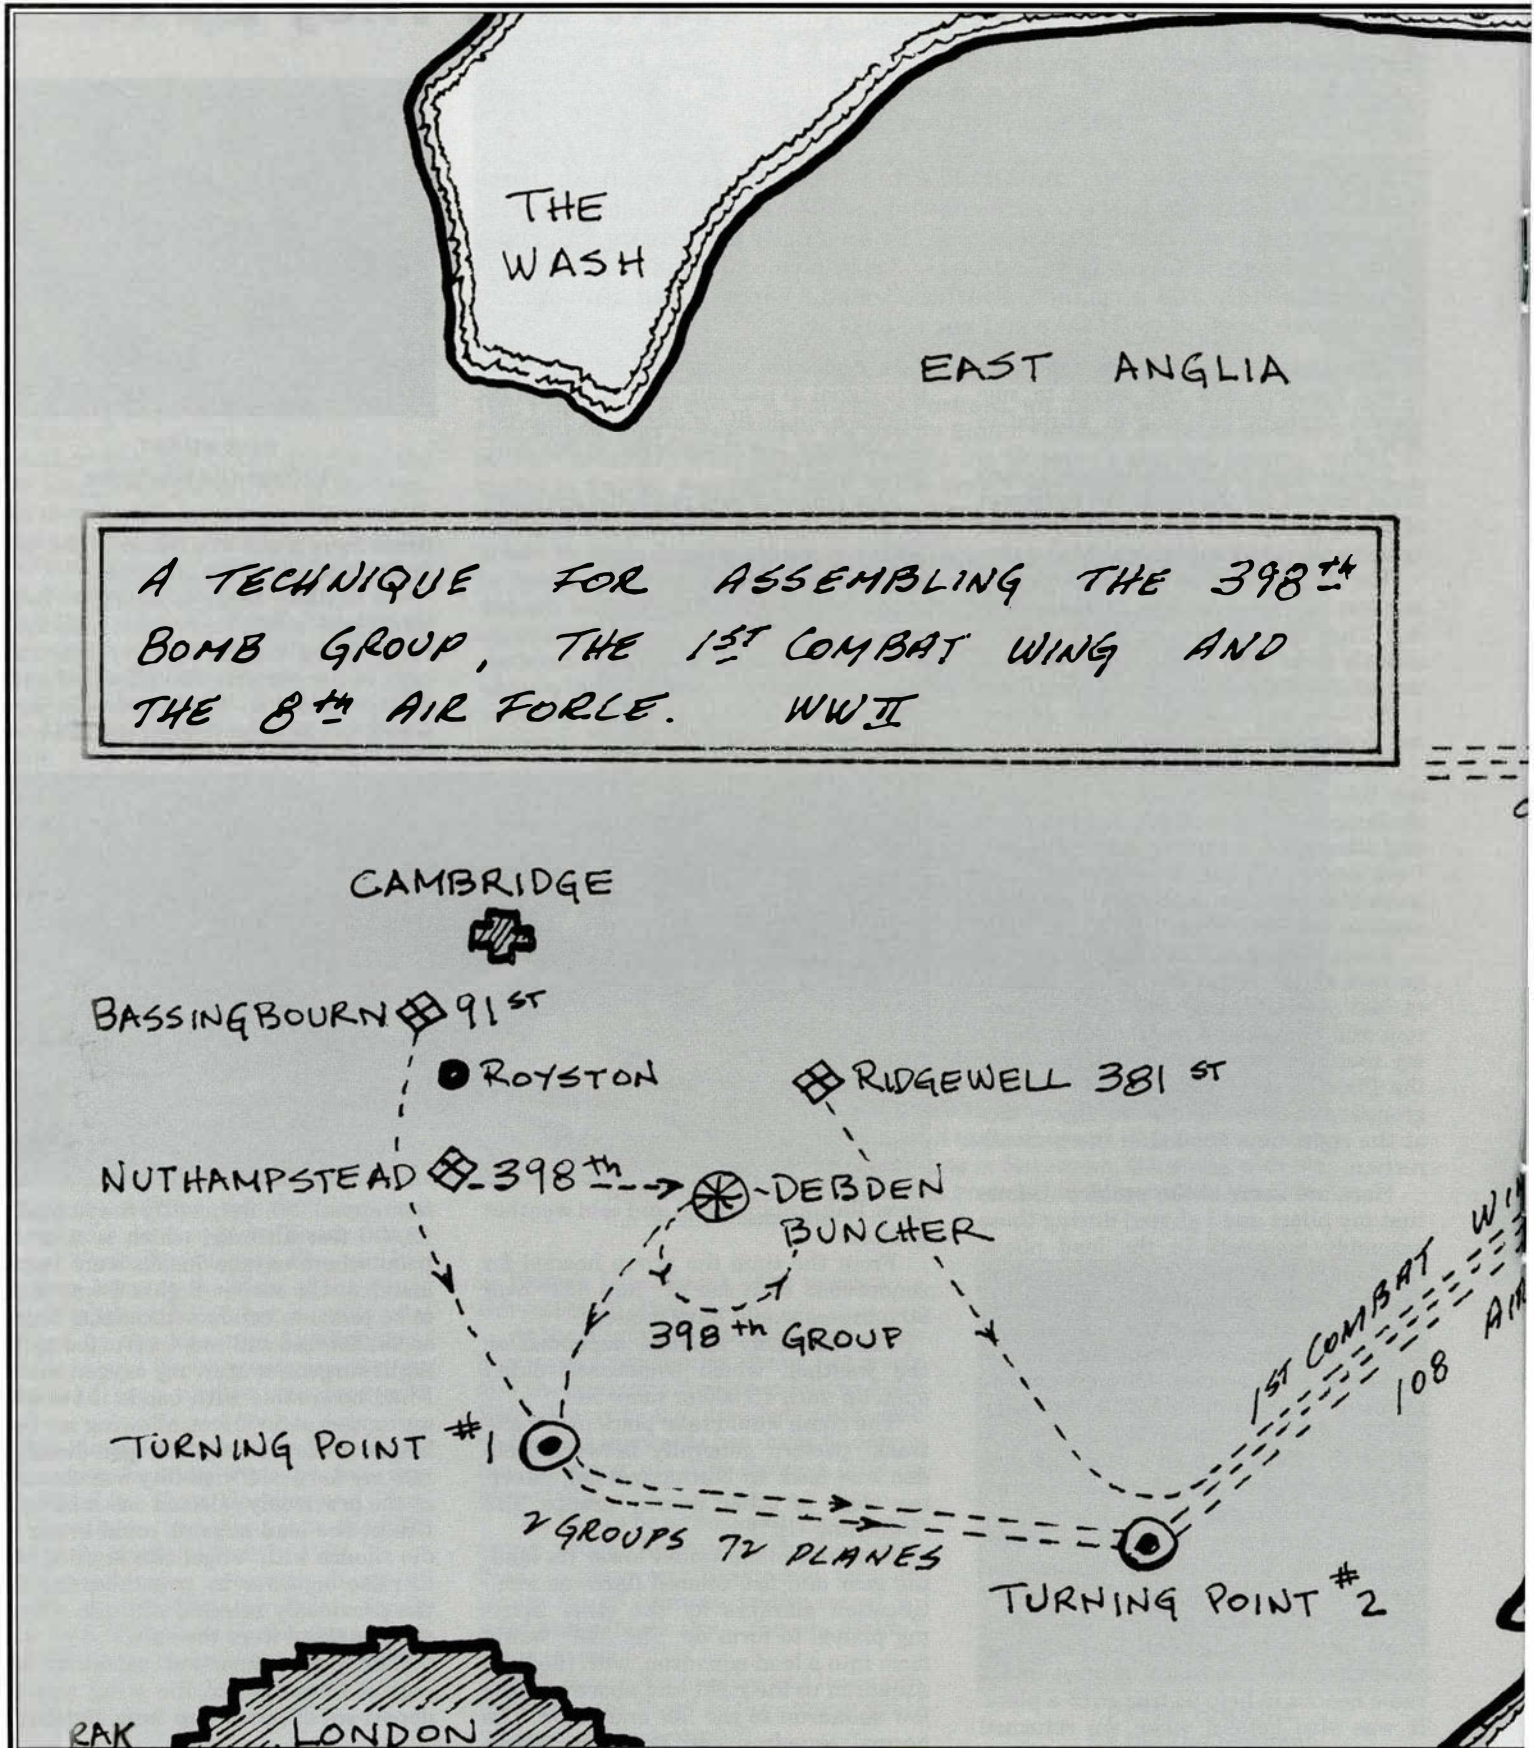 THE
WASH
EAST ANGLIA
A TECHNIQUE FOR ASSEMBLING THE 398th
BOMB GROUP, THE 1ST COMBAT WING AND
THE 8th AIR FORCE. WWII
CAMBRIDGE
BASSINGBOURN 91ST
ROYSTON
RIDGEWELL 381ST
NUTHAMPSTEAD 398th
DEBDEN
BUNCHER
398th GROUP
1ST COMBAT
108
TURNING POINT #1
2 GROUPS 72 PLANES
TURNING POINT #2
RAK
LONDON